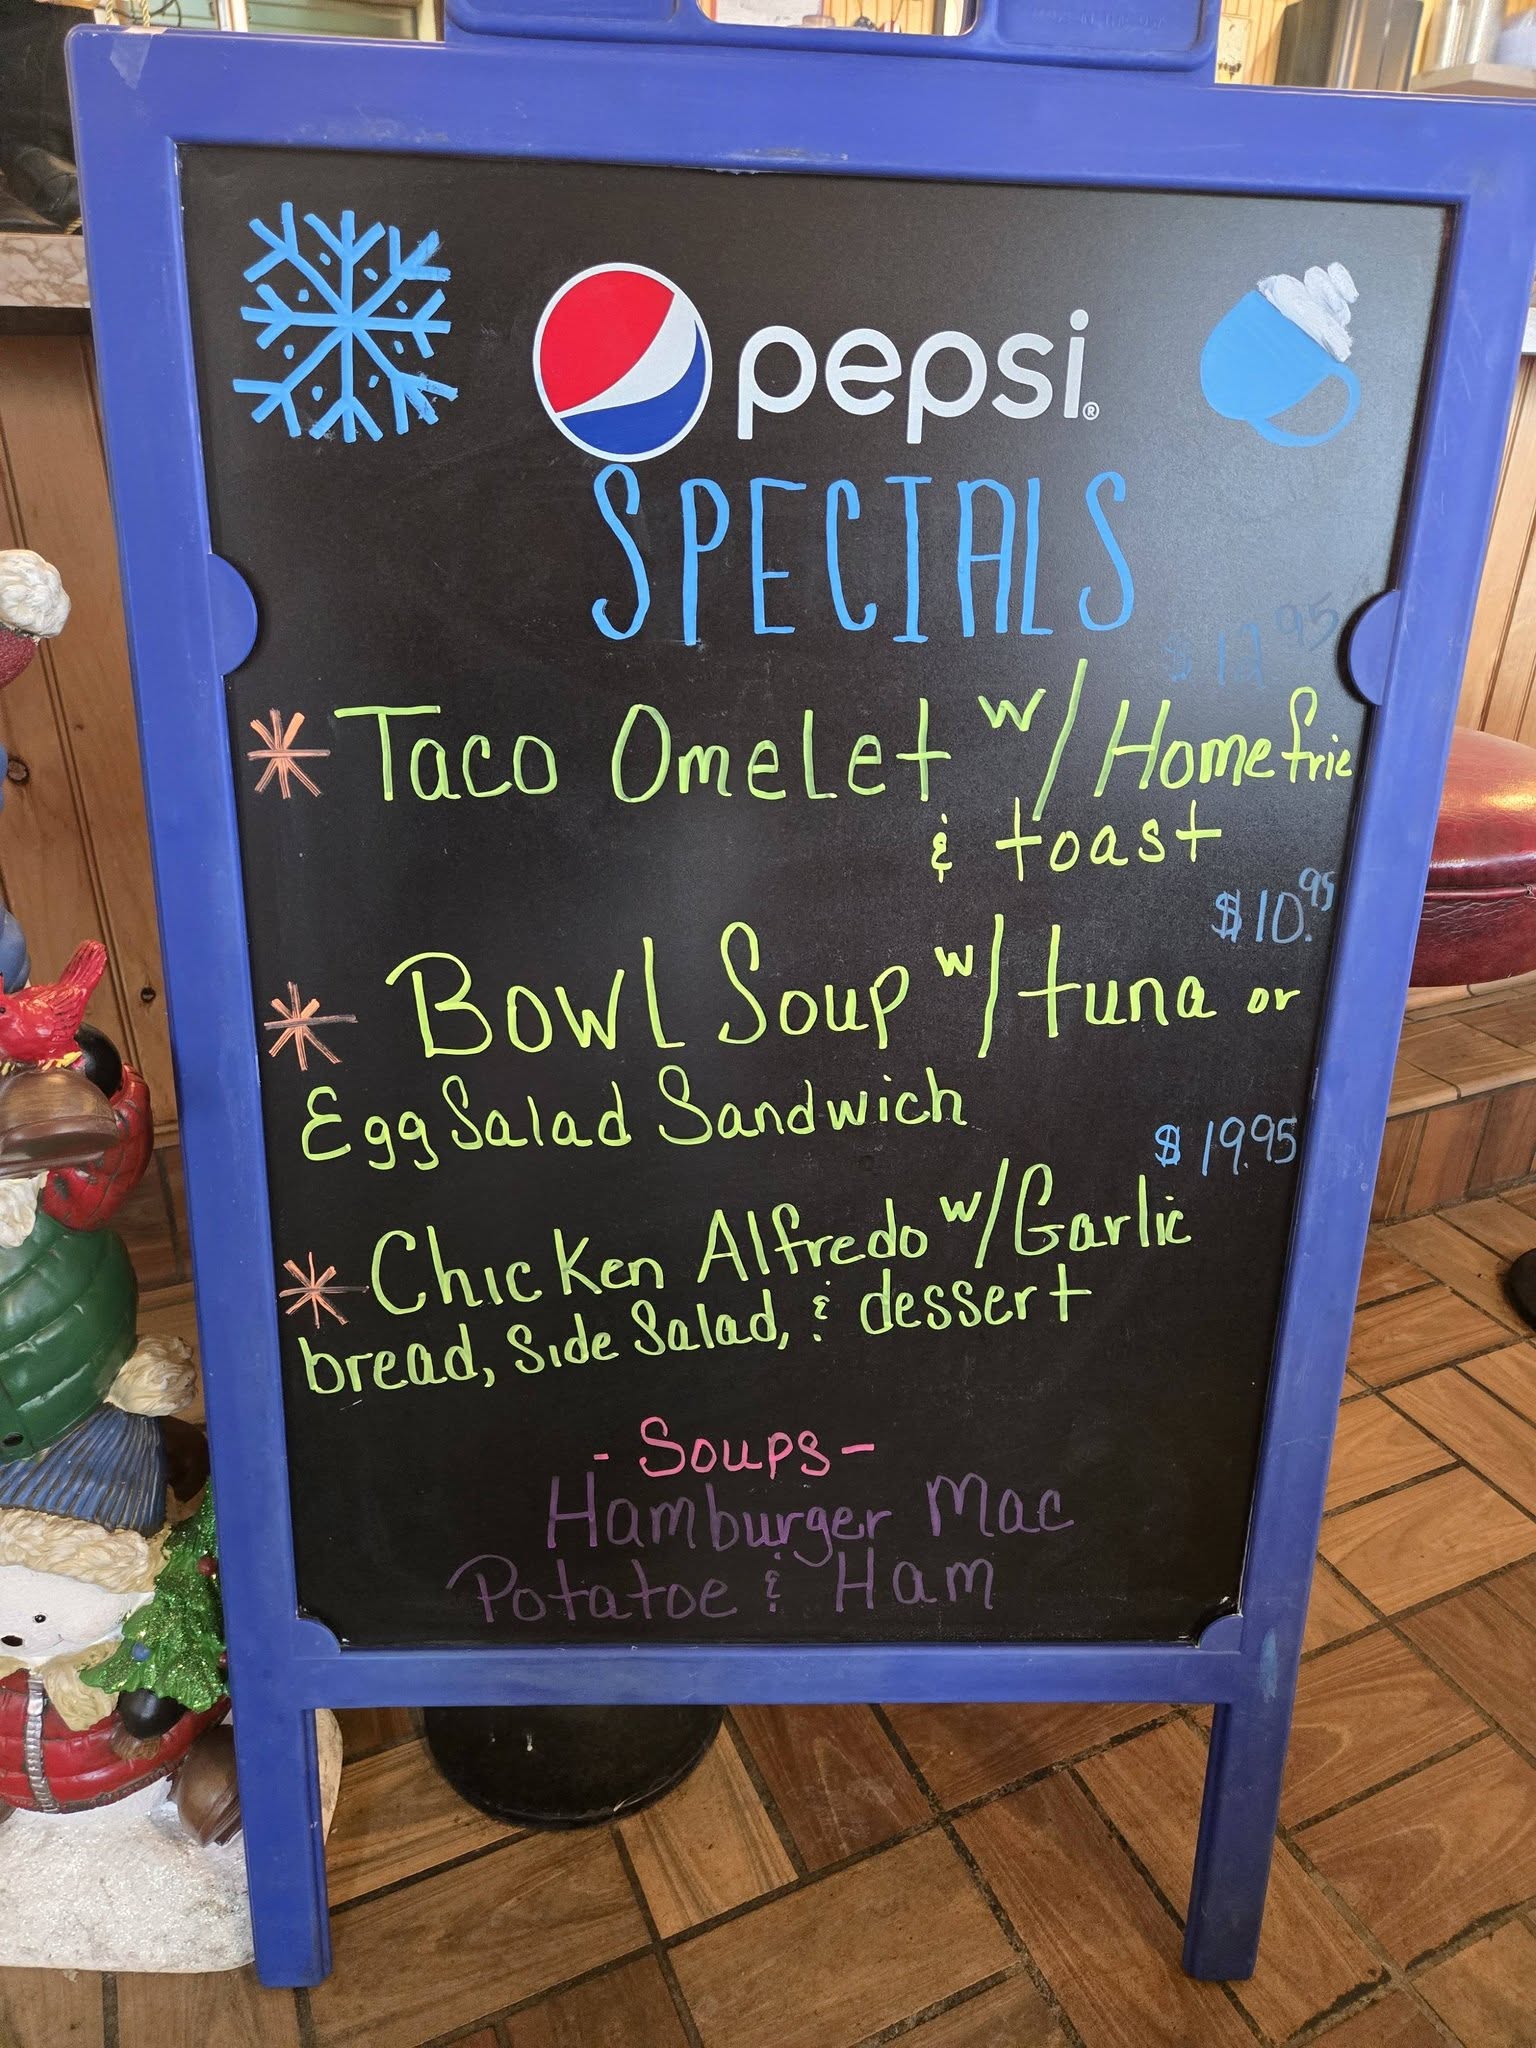 pepsi®
SPECIALS
$12.95
* Taco Omelet w/ Homefrie
& toast
$10.95
* Bowl Soup w/ tuna or
Egg Salad Sandwich
$19.95
* Chicken Alfredo w/ Garlic
bread, Side Salad, & dessert
- Soups -
Hamburger Mac
Potatoe & Ham